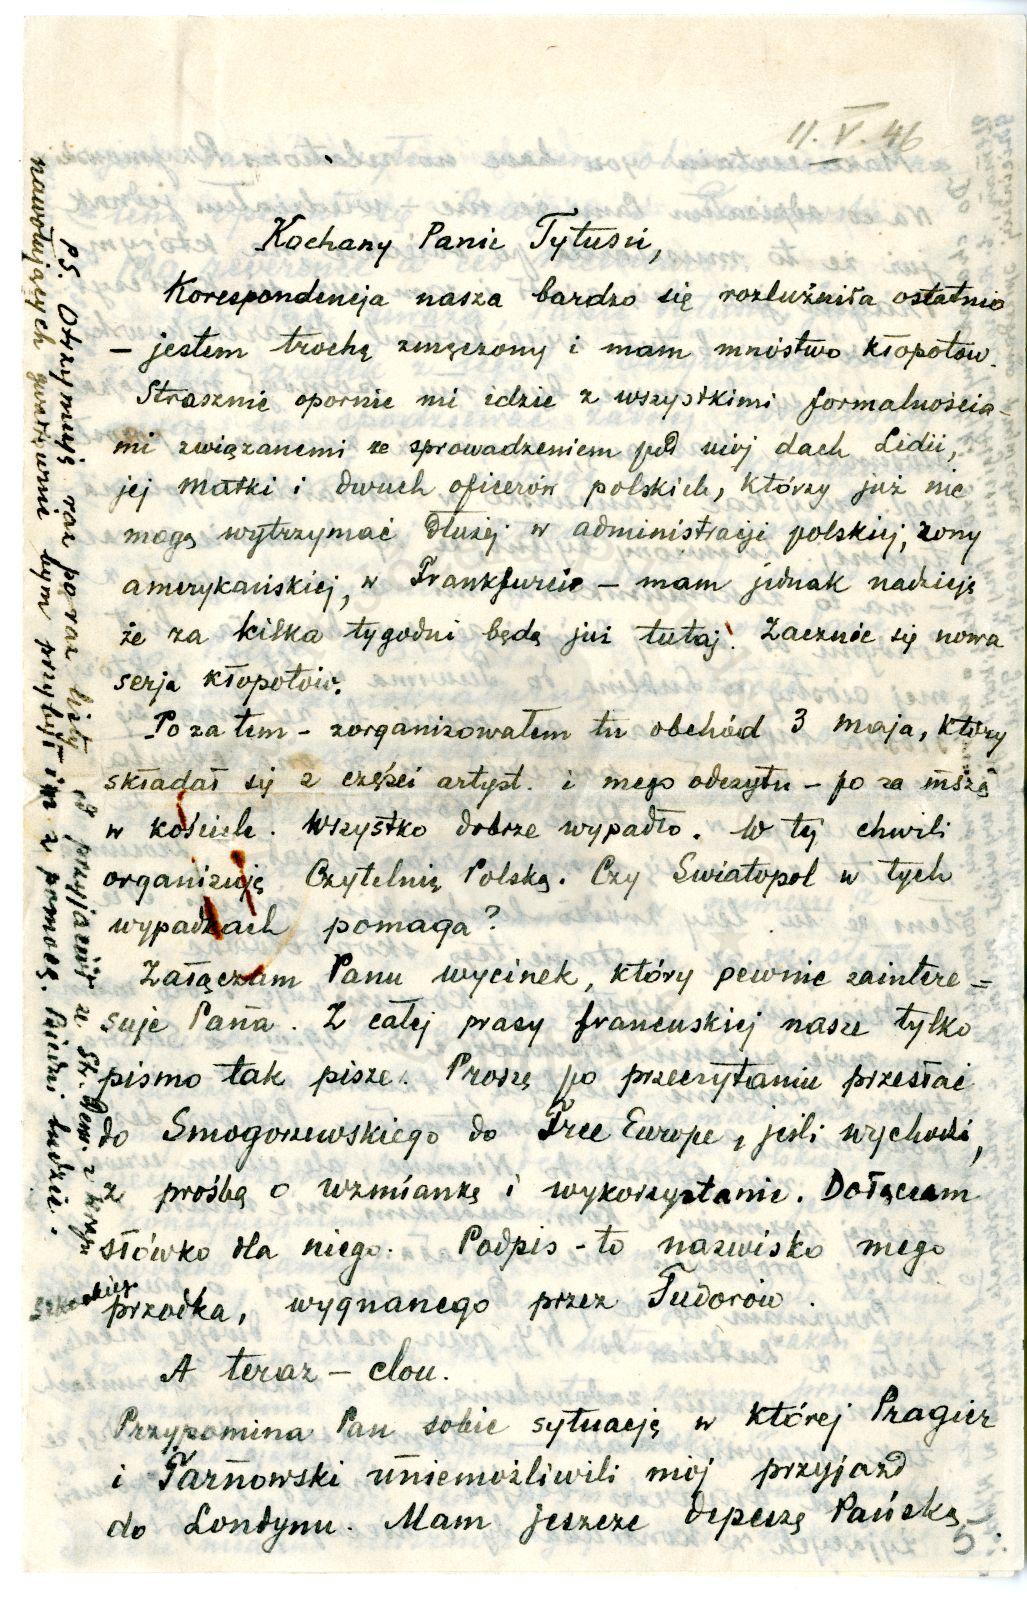 11. V. 46
Kochany Panie Tytusie,
Korespondencja nasza bardzo się rozluźniła ostatnio
– jestem trochę zmęczony i mam mnóstwo kłopotów.
Strasznie opornie mi idzie z wszystkimi formalnościa-
mi związanemi ze sprowadzeniem pod mój dach Lidii,
jej matki i dwuch oficerów polskich, którzy już nie
mogą wytrzymać dłużej w administracji polskiej, zony
amerykańskiej, w Frankfurcie – mam jednak nadzieję
że za kilka tygodni będą już tutaj. Zacznie się nowa
serja kłopotów.
Poza tem – zorganizowałem tu obchód 3 maja, który
składał się z części artyst. i mego odczytu – po za mszą
w kościele. Wszystko dobrze wypadło. W tej chwili
organizuję Czytelnię Polską. Czy Światopol w tych
wypadkach pomaga?
Załączam Panu wycinek, który pewnie zaintere=
suje Pana. Z całej prasy francuskiej nasze tylko
pismo tak pisze. Proszę po przeczytaniu przesłać
do Smogorzewskiego do Free Europe, jeśli wychodzi,
z prośbą o wzmiankę i wykorzystanie. Dołączam
słówko dla niego. Podpis – to nazwisko mego
przodka, wygnanego przez Tudorów.
A teraz – clou.
Przypomina Pan sobie sytuację w której Pragier
i Tarnowski uniemożliwili mój przyjazd
do Londynu. Mam jeszcze depeszę Pańską
PS. Otrzymuję raz poraz listy od przyjaciół z Str. Dem. z kraju
nawołujących gwałtownie bym przybył im z pomocą. Biedni ludzie.